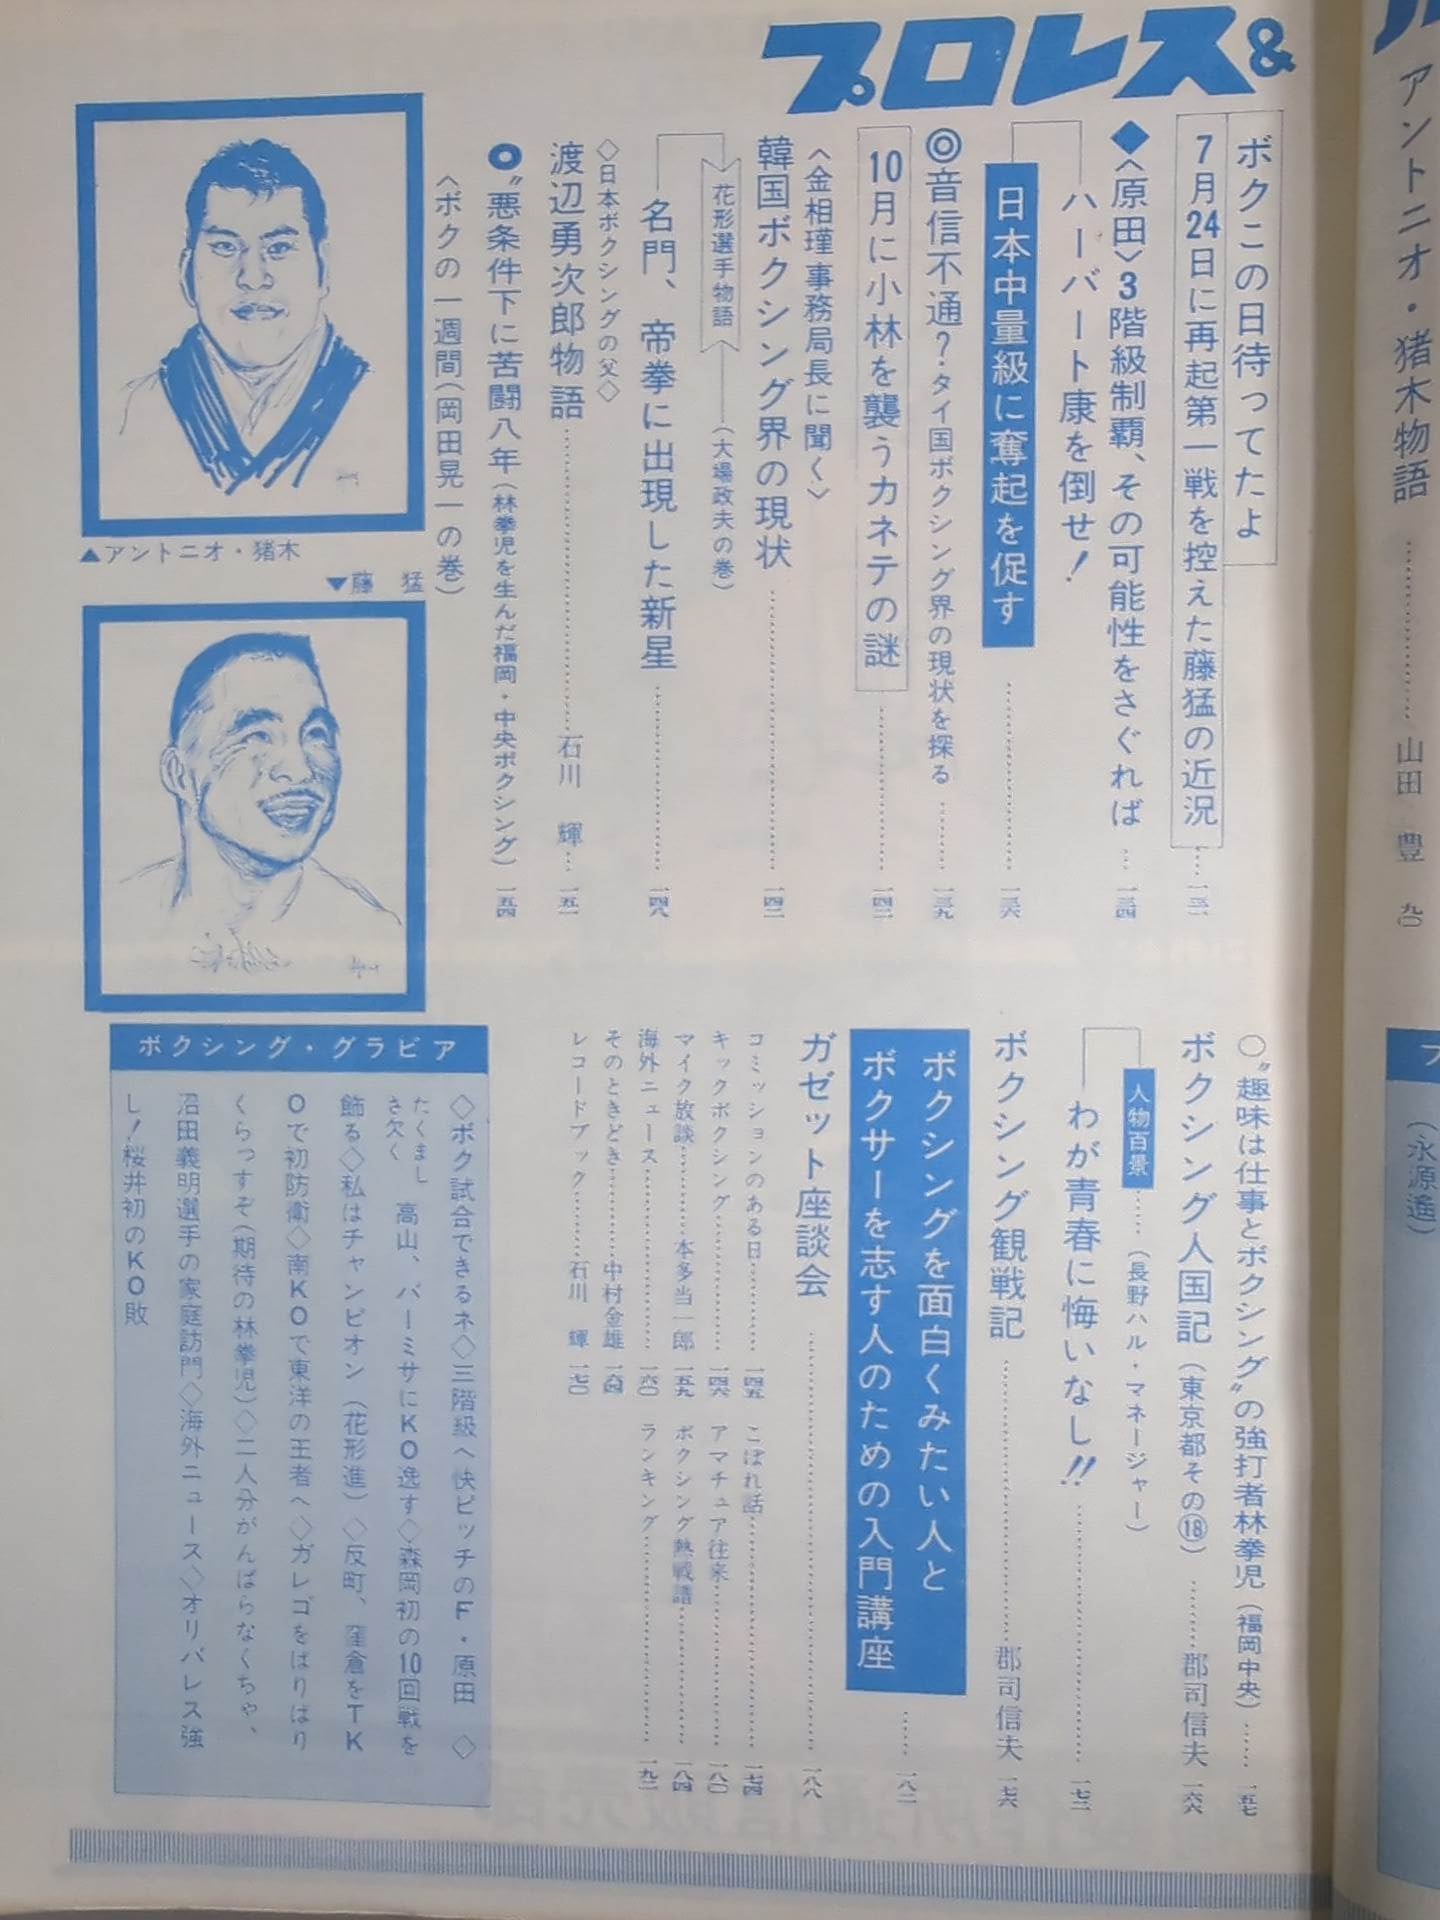 プロレス&
ボクこの日待ってたよ
7月24日に再起第一戦を控えた藤猛の近況……一三二
◆〈原田〉3階級制覇、その可能性をさぐれば…一三四
ハーバート康を倒せ!
日本中量級に奮起を促す……一三六
◎音信不通?・タイ国ボクシング界の現状を探る……一三九
10月に小林を襲うカネテの謎……一四二
〈金相瑾事務局長に聞く〉
韓国ボクシング界の現状……一四二
花形選手物語——(大場政夫の巻)
名門、帝拳に出現した新星……一四八
◇日本ボクシングの父◇
渡辺勇次郎物語……石川 輝…一五一
〝悪条件下に苦闘八年(林拳児を生んだ福岡・中央ボクシング)一五四
〈ボクの一週間(岡田晃一の巻)
▲アントニオ・猪木
▼藤 猛
○〝趣味は仕事とボクシング〟の強打者林拳児(福岡中央)……一五七
ボクシング人国記(東京都その⑱)……郡司信夫 一六六
人物百景……(長野ハル・マネージャー)
わが青春に悔いなし!!……一七二
ボクシング観戦記……郡司信夫 一七六
ボクシングを面白くみたい人と
ボクサーを志す人のための入門講座……一八二
ガゼット座談会……一八八
コミッションのある日……一四五
キックボクシング……一四六
マイク放談……本多当一郎 一五九
海外ニュース……一六〇
そのときどき……中村金雄 一六四
レコードブック……石川 輝 一七〇
こぼれ話……一七四
アマチュア往来……一八〇
ボクシング熱戦譜……一八四
ランキング……一九二
ボクシング・グラビア
◇ボク試合できるネ◇三階級へ快ピッチのF・原田 ◇
たくまし
さ欠く 高山、バーミサにKO逸す◇森岡初の10回戦を
飾る◇私はチャンピオン(花形進)◇反町、窪倉をTK
Oで初防衛◇南KOで東洋の王者へ◇ガレゴをばりばり
くらっすぞ(期待の林拳児)◇二人分がんばらなくちゃ、
沼田義明選手の家庭訪門◇海外ニュース◇オリバレス強
し!桜井初のKO敗
アントニオ・猪木物語……山田 豊 九〇
(永源遙)